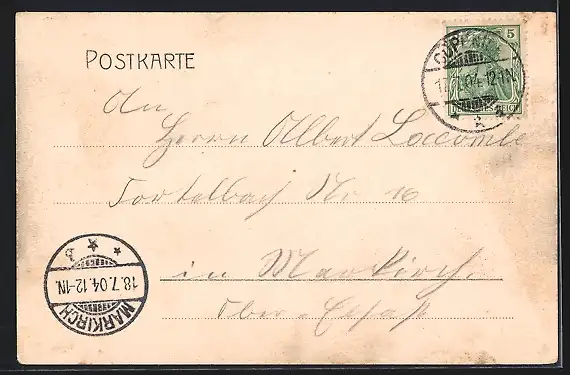 POSTKARTE
5
An
Herrn Albert Lacombe
Fortelbach Nr. 16
in Markirch
Ober-Elsaß
18.7.04.12-1N.
MARKIRCH
b